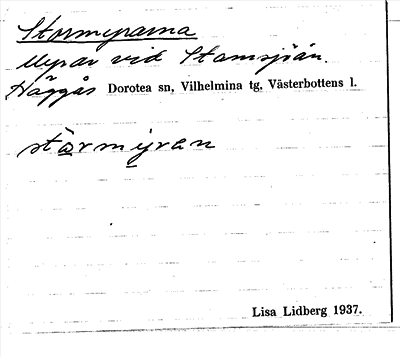 Stormyrarna
Myrar vid Stamsjöån.
Häggås Dorotea sn, Vilhelmina tg, Västerbottens l.
stårmyran
Lisa Lidberg 1937.